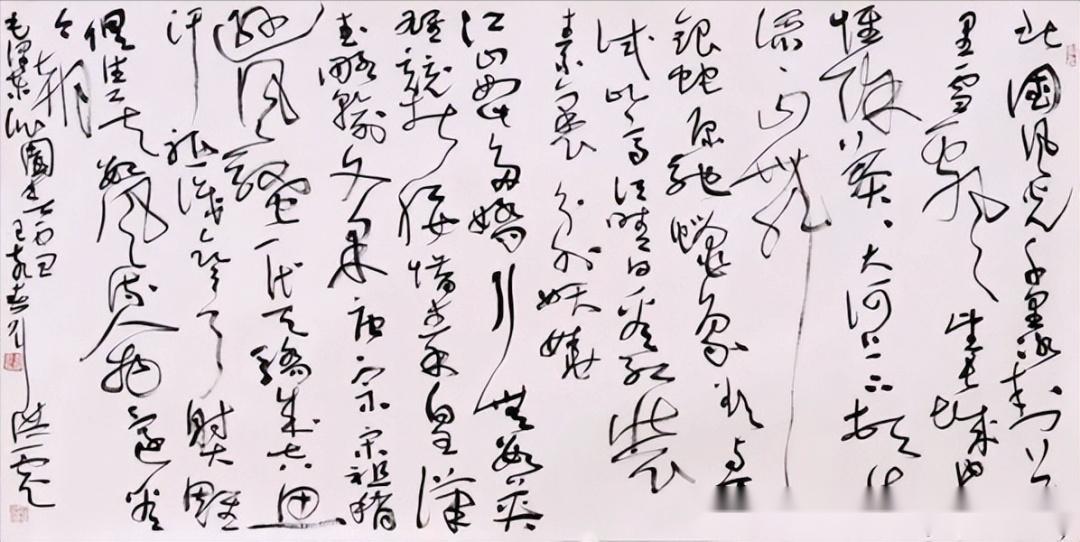 北國风光千里冰封万
里雪飘飘望长城内
惟馀莽〻大河上下顿失
滔〻山舞
银蛇原驰蜡象欲与
试比高须晴日看红装
素裹分外妖娆
江山如此多娇引无数英
雄竞折腰惜秦皇汉
武略输文采唐宗宋祖稍
逊风骚一代天骄成吉思
汗祗识弯弓射雕
俱往矣数风流人物还看
今朝
毛泽东沁園春